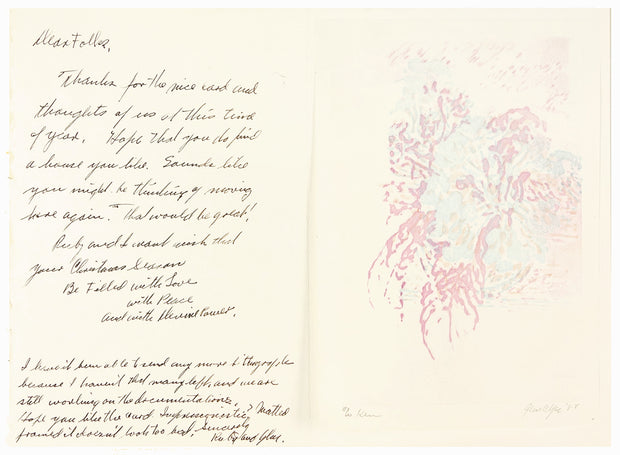 Dear Folks,
Thanks for the nice card and
thoughts of us at this time
of year. Hope that you do find
a house you like. Sounds like
you might be thinking of moving
here again. That would be great!
Ruby and I want wish that
your Christmas Season
Be Filled with Love
with Peace
and with Devine Power.
I haven't been able to send any more lithographs
because I haven't that many left, and we are
still working on the documentations.
Hope you like the card Impressionistic? Matted
framed it doesn't look too bad. Sincerely
Ruby and Glen.